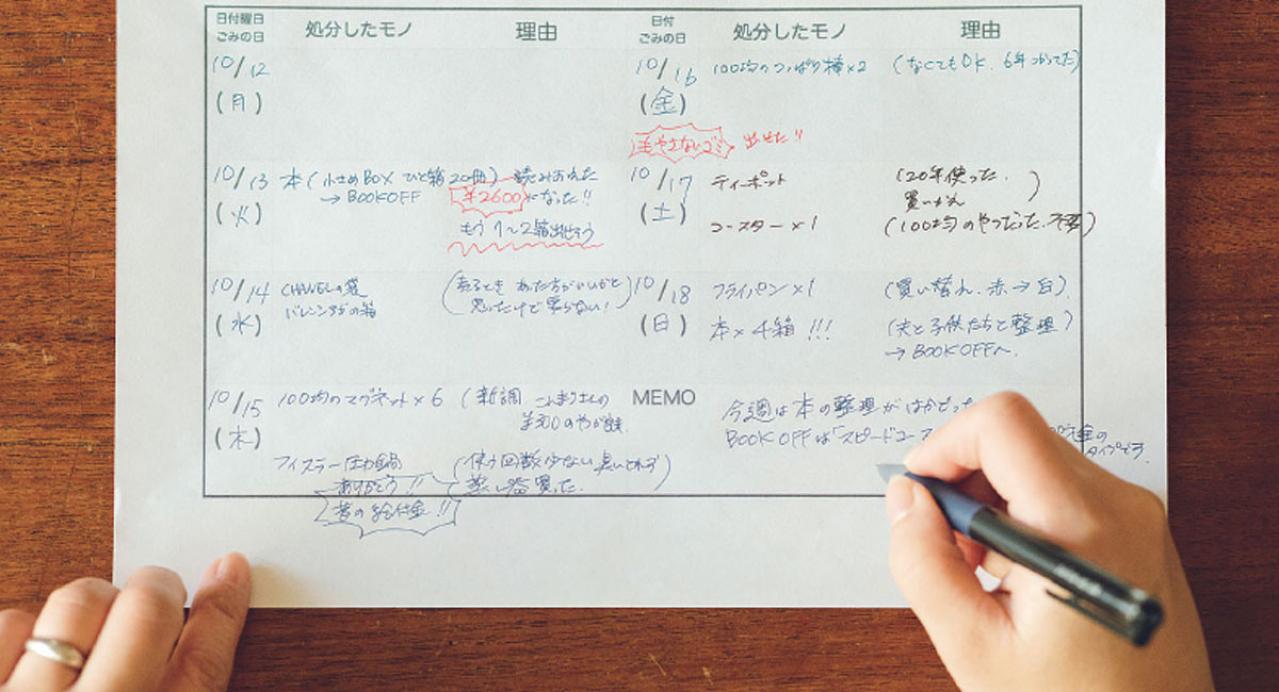 日付曜日
ごみの日
処分したモノ
理由
10/12
(月)
10/13
(火)
本(小さめBOX ひと箱20冊)
→BOOKOFF
読みおえた
¥2600になった!!
もう1〜2箱出せそう
10/14
(水)
CHANELの袋
バレンシアガの箱
(売るとき あった方がいいかと
思ったけど売らない!)
10/15
(木)
100均のマグネット×6
(新調 こんまりさんの
フィスラー圧力鍋
ありがとう!!
昔の給付金!!
(使う回数少ない
蒸し器買った.)
日付
ごみの日
処分したモノ
理由
10/16
(金)
100均のつっぱり棒×2
(なくてもOK. 6年つかってた)
もやさないゴミ 出せた!!
10/17
(土)
ティーポット
(20年使った.
買いかえ)
コースター×1
(100均のやつだった.不要)
10/18
(日)
フライパン×1
(買い替え.赤→白)
本×4箱!!!
(夫と子供たちと整理)
→BOOKOFFへ.
MEMO
今週は本の整理がはかどった
BOOKOFFは「スピードコー
タイプです.